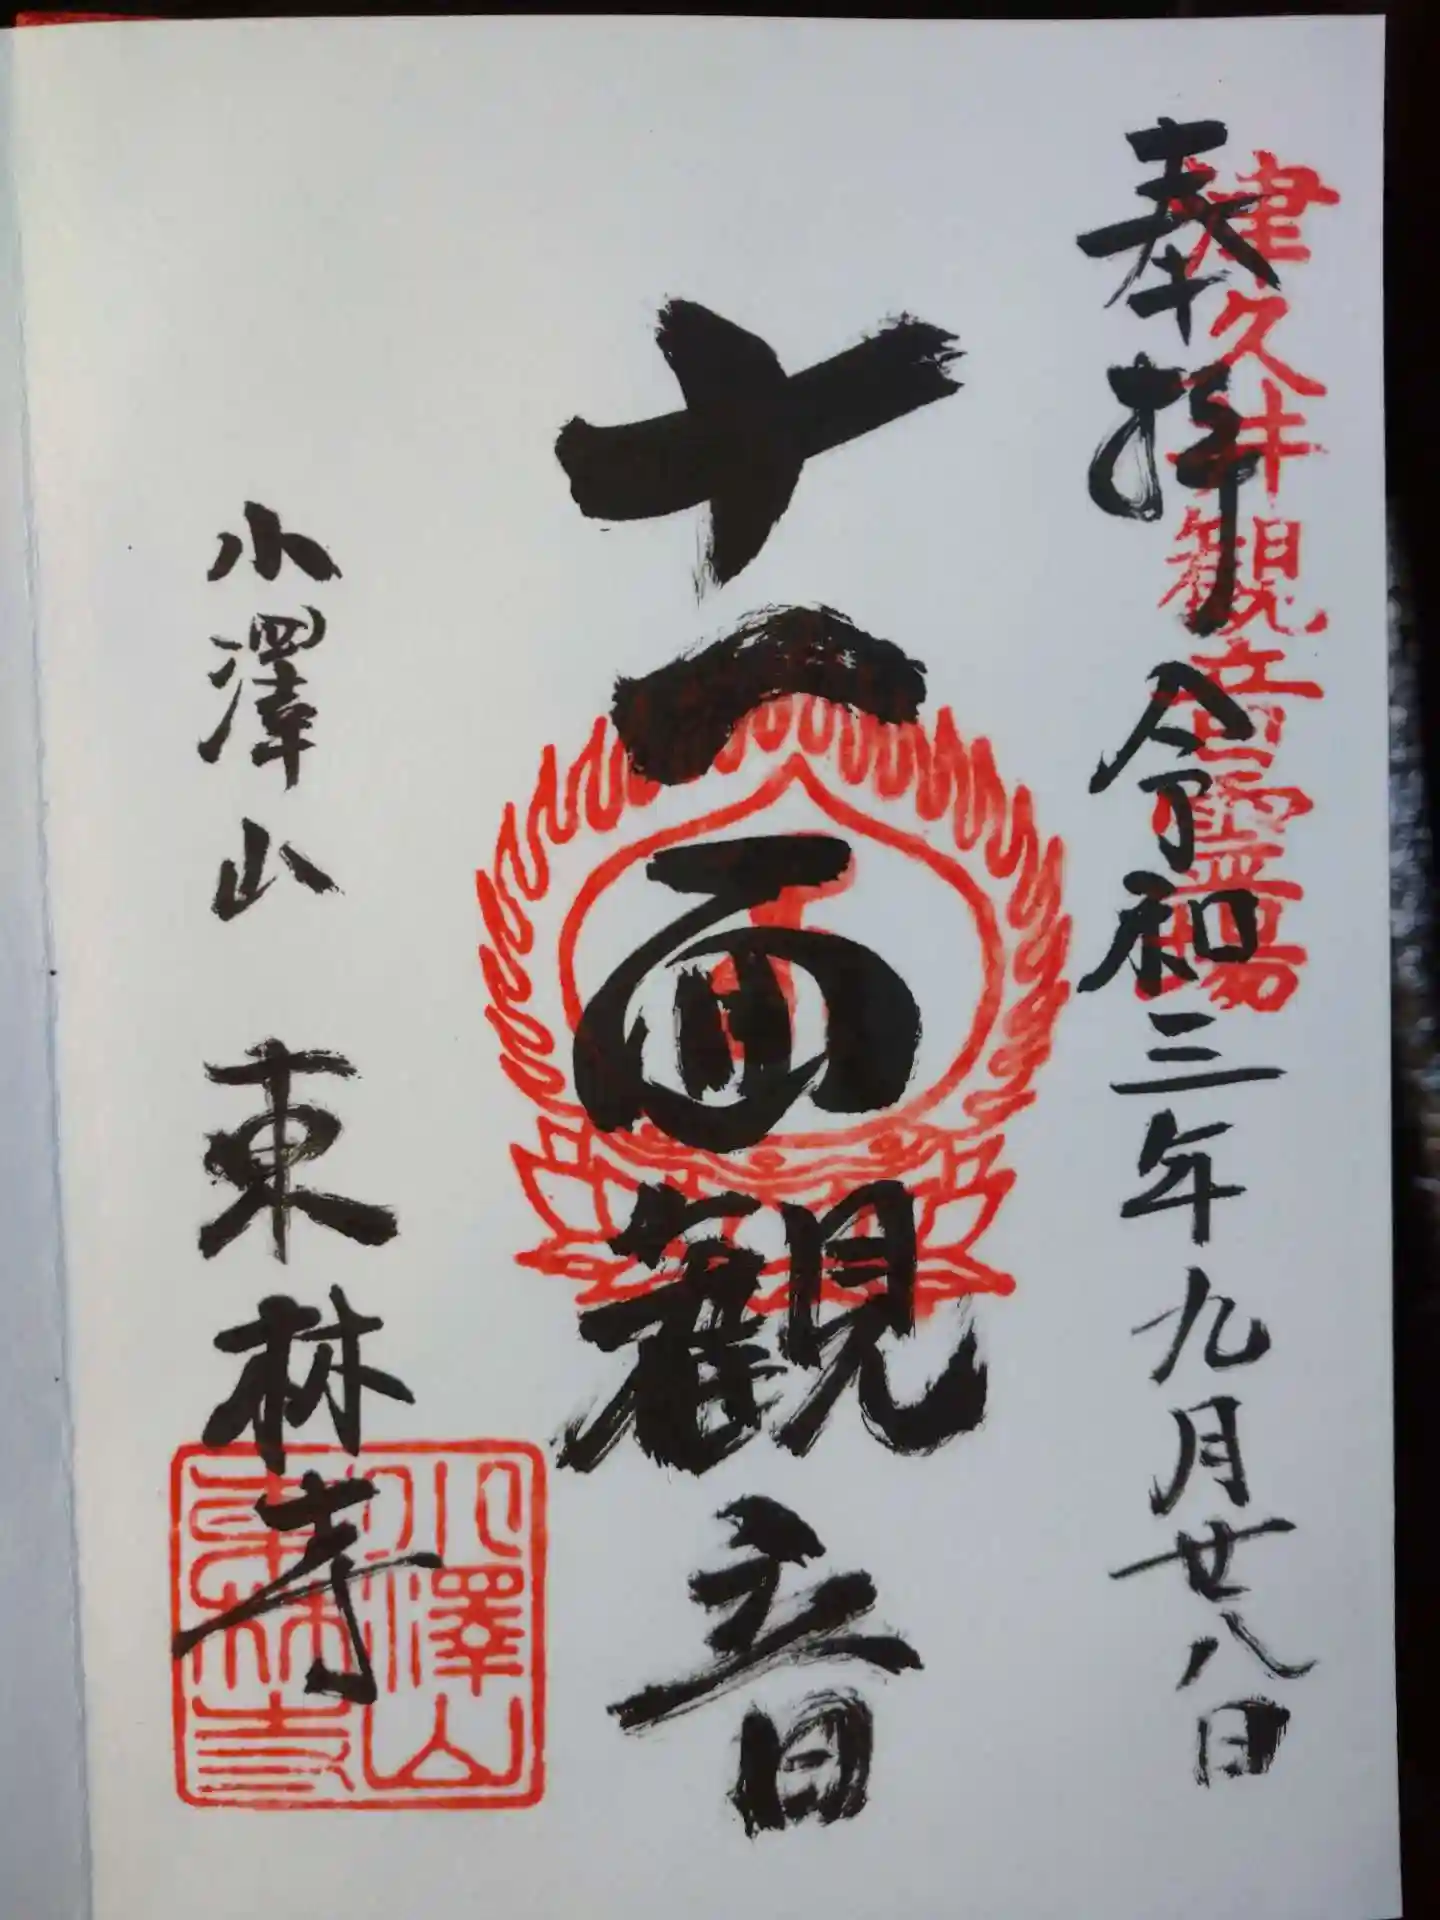 奉拝 令和三年九月廿八日
津久井観音霊場
十一面観音
小澤山 東林寺
小澤山
東林寺